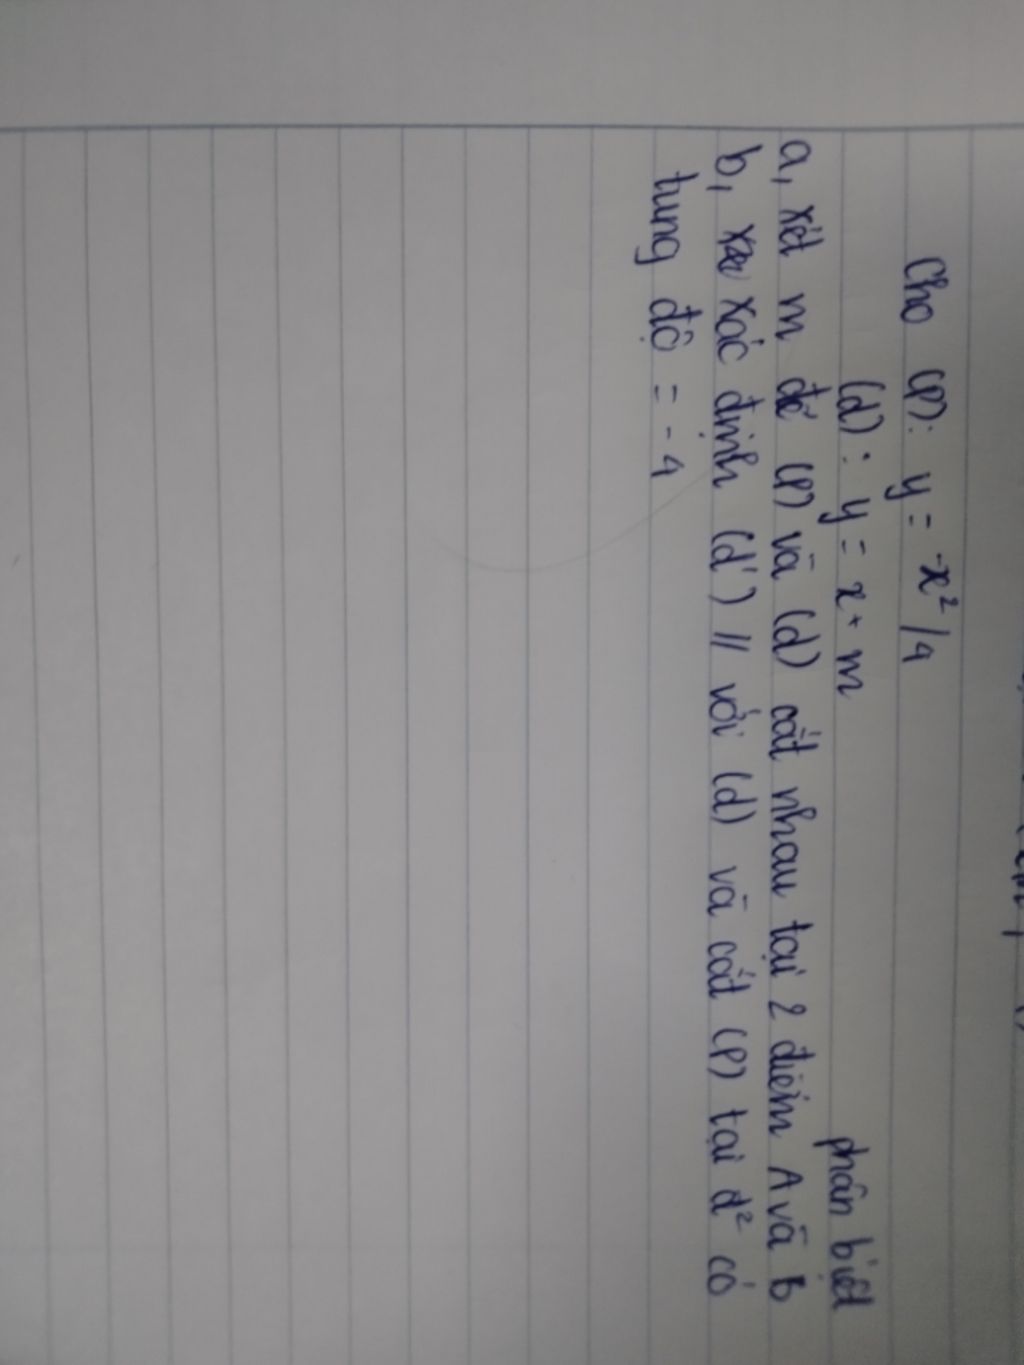 Cho (P): y = -x²/4
(d): y = x + m
phân biệt
a, xét m để (P) và (d) cắt nhau tại 2 điểm A và B
b, xác định (d') // với (d) và cắt (P) tại đ² có
tung độ = -4